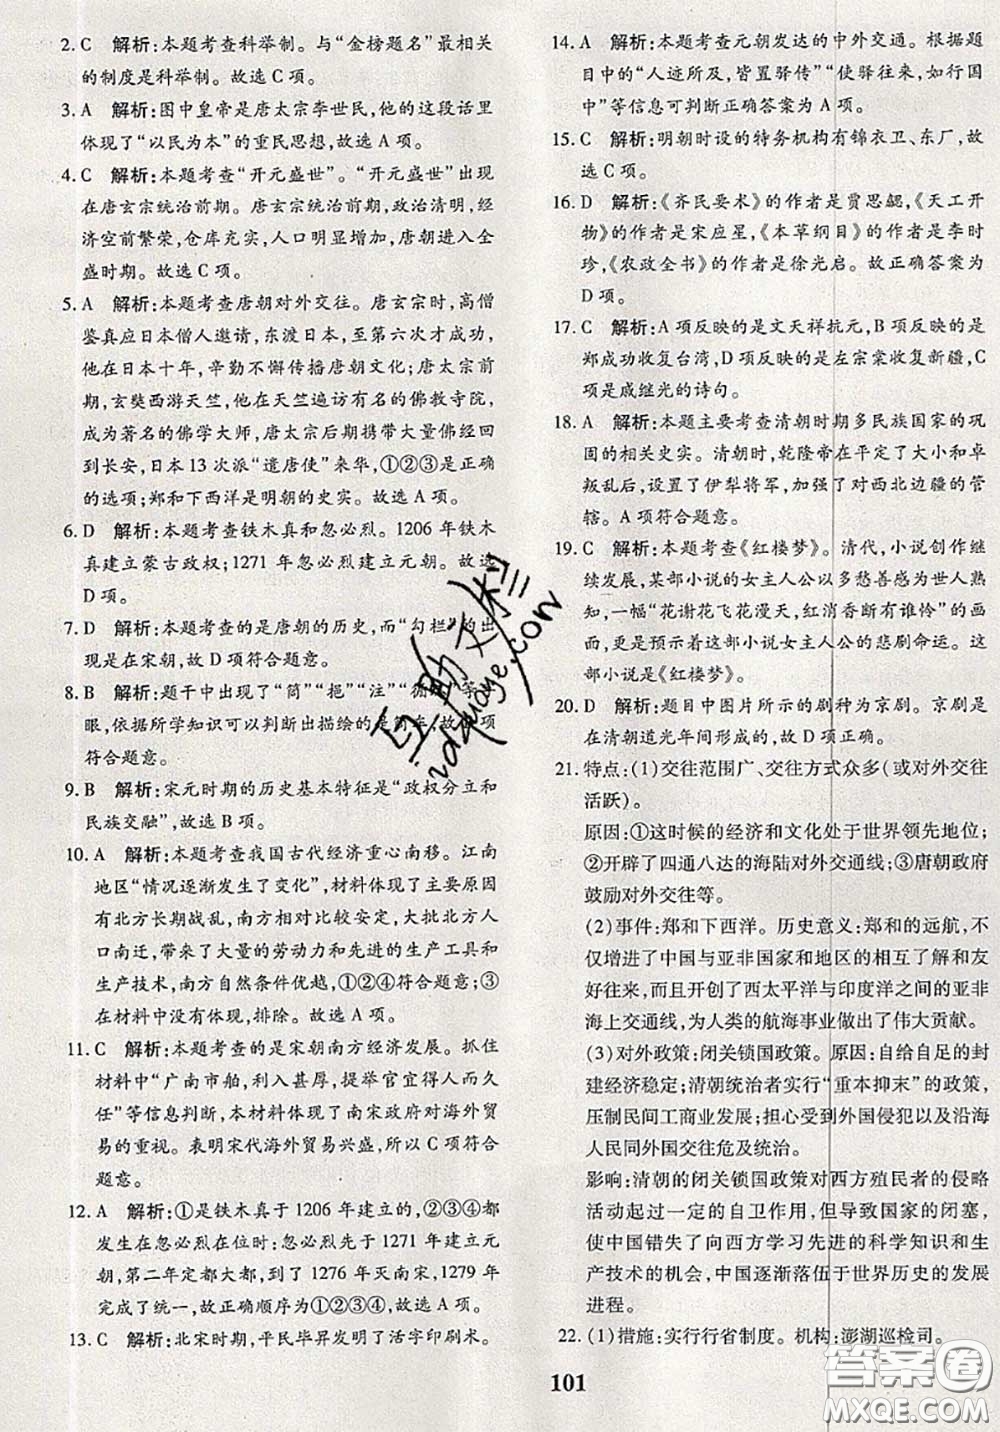 2. C 解析:本题考查科举制。与“金榜题名”最相关
的制度是科举制。故选 C 项。
3. A 解析:图中皇帝是唐太宗李世民,他的这段话里
体现了“以民为本”的重民思想,故选 A 项。
4. C 解析:本题考查“开元盛世”。“开元盛世”出现
在唐玄宗统治前期。唐玄宗统治前期,政治清明,经
济空前繁荣,仓库充实,人口明显增加,唐朝进入全
盛时期。故选 C 项。
5. A 解析:本题考查唐朝对外交往。唐玄宗时,高僧
鉴真应日本僧人邀请,东渡日本,至第六次才成功,
他在日本十年,辛勤不懈传播唐朝文化;唐太宗前
期,玄奘西游天竺,他在天竺遍访有名的佛教寺院,
成为著名的佛学大师,唐太宗后期携带大量佛经回
到长安,日本 13 次派“遣唐使”来华,①②③是正确
的选项;郑和下西洋是明朝的史实。故选 A 项。
6. D 解析:本题考查铁木真和忽必烈。1206 年铁木
真建立蒙古政权;1271 年忽必烈建立元朝。故选
D 项。
7. D 解析:本题考查的是唐朝的历史,而“勾栏”的出
现是在宋朝,故 D 项符合题意。
8. B 解析:题干中出现了“筒”“挹”“注”“循环”等
眼,依据所学知识可以判断出描绘的是筒车,故 B 项
符合题意。
9. B 解析:宋元时期的历史基本特征是“政权分立和
民族交融”,故选 B 项。
10. A 解析:本题考查我国古代经济重心南移。江南
地区“情况逐渐发生了变化”,材料体现的主要原因
有北方长期战乱,南方相对比较安定,大批北方人
口南迁,带来了大量的劳动力和先进的生产工具和
生产技术,南方自然条件优越,①②④符合题意;③
在材料中没有体现,排除。故选 A 项。
11. C 解析:本题考查的是宋朝南方经济发展。抓住
材料中“广南市舶,利入甚厚,提举官宜得人而久
任”等信息判断,本材料体现了南宋政府对海外贸
易的重视。表明宋代海外贸易兴盛,所以 C 项符合
题意。
12. A 解析:①是铁木真于 1206 年建立的,②③④都
发生在忽必烈在位时;忽必烈先于 1271 年建立元
朝,第二年定都大都,到了 1276 年灭南宋,1279 年
完成了统一,故正确顺序为①②③④,故选 A 项。
13. C 解析:北宋时期,平民毕昇发明了活字印刷术。
14. A 解析:本题考查元朝发达的中外交通。根据题
目中的“人迹所及,皆置驿传”“使驿往来,如行国
中”等信息可判断正确答案为 A 项。
15. C 解析:明朝时设的特务机构有锦衣卫、东厂,故
选 C 项。
16. D 解析:《齐民要术》的作者是贾思勰,《天工开
物》的作者是宋应星,《本草纲目》的作者是李时
珍,《农政全书》的作者是徐光启。故正确答案为
D 项。
17. C 解析:A 项反映的是文天祥抗元,B 项反映的是
郑成功收复台湾,D 项反映的是左宗棠收复新疆,C
项是戚继光的诗句。
18. A 解析:本题主要考查清朝时期多民族国家的巩
固的相关史实。清朝时,乾隆帝在平定了大小和卓
叛乱后,设置了伊犁将军,加强了对西北边疆的管
辖。A 项符合题意。
19. C 解析:本题考查《红楼梦》。清代,小说创作继
续发展,某部小说的女主人公以多愁善感为世人熟
知,一幅“花谢花飞花漫天,红消香断有谁怜”的画
面,更是预示着这部小说女主人公的悲剧命运。这
部小说是《红楼梦》。
20. D 解析:题目中图片所示的剧种为京剧。京剧是
在清朝道光年间形成的,故 D 项正确。
21. 特点:(1)交往范围广、交往方式众多(或对外交往
活跃)。
原因:①这时候的经济和文化处于世界领先地位;
②开辟了四通八达的海陆对外交通线;③唐朝政府
鼓励对外交往等。
(2)事件:郑和下西洋。历史意义:郑和的远航,不
仅增进了中国与亚非国家和地区的相互了解和友
好往来,而且开创了西太平洋与印度洋之间的亚非
海上交通线,为人类的航海事业做出了伟大贡献。
(3)对外政策:闭关锁国政策。原因:自给自足的封
建经济稳定;清朝统治者实行“重本抑末”的政策,
压制民间工商业发展;担心受到外国侵犯以及沿海
人民同外国交往危及统治。
影响:清朝的闭关锁国政策对西方殖民者的侵略
活动起过一定的自卫作用,但导致国家的闭塞,
使中国错失了向西方学习先进的科学知识和生
产技术的机会,中国逐渐落伍于世界历史的发展
进程。
22. (1)措施:实行行省制度。机构:澎湖巡检司。
101
答案圈
MXQE.COM
互助文栏